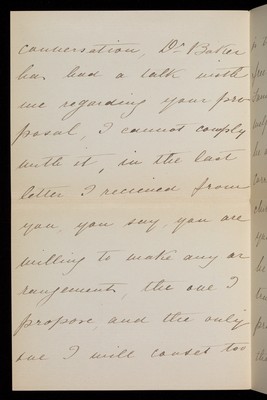 conversation, Dr Baker
has had a talk with
me regarding your pro
posal, I cannot comply
with it, in the last
letter I recieved from
you, you say you are
willing to make any ar
rangements, the one I
propose, and the only
one I will conset too